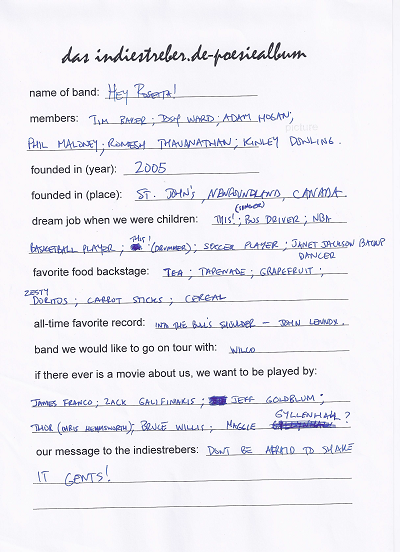 das indiestreber.de-poesiealbum
name of band: HEY ROSETTA!
picture
members: TIM BAKER; JOSH WARD; ADAM HOGAN;
PHIL MALONEY; ROMESH THAVANATHAN; KINLEY DOWLING.
founded in (year): 2005
founded in (place): ST. JOHN'S, NEWFOUNDLAND, CANADA
(SINGER)
dream job when we were children: THIS!; BUS DRIVER; NBA
THIS!
BASKETBALL PLAYER; (DRUMMER); SOCCER PLAYER; JANET JACKSON BACKUP
DANCER
favorite food backstage: TEA; TAPENADE; GRAPEFRUIT;
ZESTY
DORITOS; CARROT STICKS; CEREAL
all-time favorite record: INTO THE BULL'S SHOULDER - JOHN LENNOX.
band we would like to go on tour with: WILCO
if there ever is a movie about us, we want to be played by:
JAMES FRANCO; ZACK GALIFINAKIS; JEFF GOLDBLUM;
GYLLENHALL
THOR (CHRIS HEMMSWORTH); BRUCE WILLIS; MAGGIE ?
our message to the indiestrebers: DON'T BE AFRAID TO SHAKE
IT GENTS!